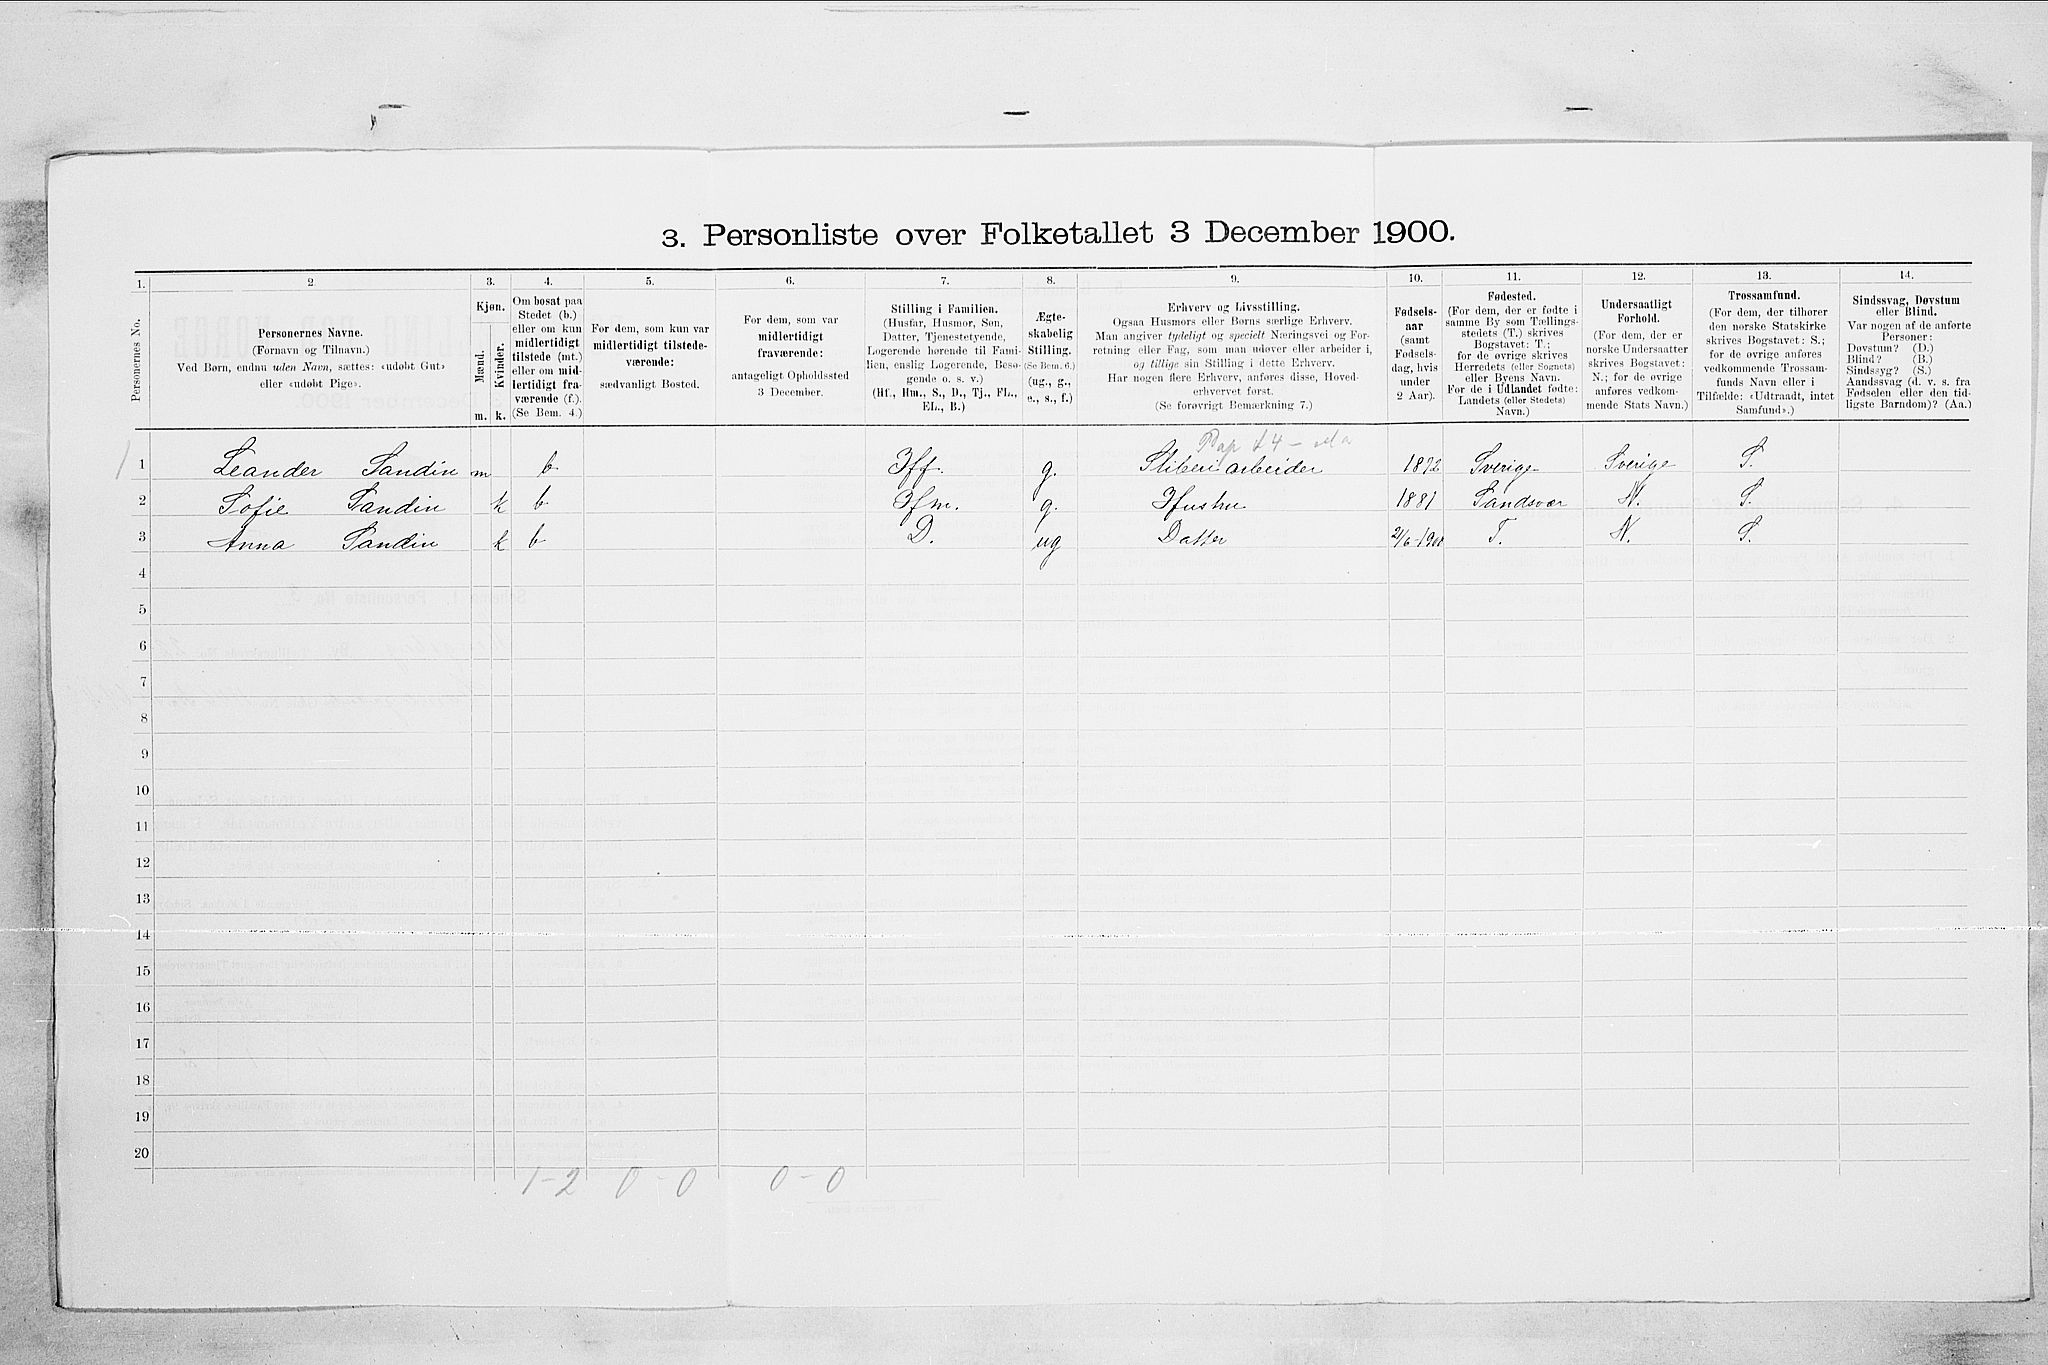 3. Personliste over Folketallet 3 December 1900.
1. 2 3. 4. 5. 6. 7. 8. 9. 10. 11. 12. 13. 14.
Personernes No.
Personernes Navne.
(Fornavn og Tilnavn.)
Ved Børn, endnu uden Navn, sættes: «udøbt Gut»
eller «udøbt Pige».
Kjøn.
Mænd.
Kvinder.
m. k.
Om bosat paa
Stedet (b.)
eller om kun
midlertidigt
tilstede (mt.)
eller om mid-
lertidigt fra-
værende (f.).
(Se Bem. 4.)
For dem, som kun var
midlertidigt tilstede-
værende:
sædvanligt Bosted.
For dem, som var
midlertidigt
fraværende:
antageligt Opholdssted
3 December.
Stilling i Familien.
(Husfar, Husmor, Søn,
Datter, Tjenestetyende,
Logerende hørende til Fami-
lien, enslig Logerende, Besø-
gende o. s. v.)
(Hf., Hm., S., D., Tj., FL.,
EL., B.)
Ægte-
skabelig
Stilling.
(Se Bem. 6.)
(ug., g.,
e., s., f.)
Erhverv og Livsstilling.
Ogsaa Husmors eller Børns særlige Erhverv.
Man angiver tydeligt og specielt Næringsvei og For-
retning eller Fag, som man udøver eller arbeider i,
og tillige sin Stilling i dette Erhverv.
Har nogen flere Erhverv, anføres disse, Hoved-
erhvervet først.
(Se forøvrigt Bemærkning 7.)
Fødsels-
aar
(samt
Fødsels-
dag, hvis
under
2 Aar).
Fødested.
(For dem, der er fødte i
samme By som Tællings-
stedets (T.) skrives
Bogstavet: T.;
for de øvrige skrives
Herredets (eller Sognets)
eller Byens Navn.
For de i Udlandet fødte:
Landets (eller Stedets)
Navn.)
Undersaatligt
Forhold.
(For dem, der er
norske Undersaatter
skrives Bogstavet:
N.; for de øvrige
anføres vedkom-
mende Stats Navn.)
Trossamfund.
(For dem, der tilhører
den norske Statskirke
skrives Bogstavet: S.;
for de øvrige anføres
vedkommende Trossam-
funds Navn eller i
Tilfælde: «Udtraadt, intet
Samfund».)
Sindssvag, Døvstum
eller Blind.
Var nogen af de anførte
Personer:
Døvstum? (D.)
Blind? (B.)
Sindssyg? (S.)
Aandssvag (d. v. s. fra
Fødselen eller den tid-
ligste Barndom)? (Aa.)
1 1 Leander Sandin m b Hf. g. arbeider 1872 Sverige Sverige S.
2 Sofie Sandin k b Hm. g. Hustru 1881 Sandsvær N. S.
3 Anna Sandin k b D. ug Datter 2/6-1900 T. N. S.
4
5
6
7
8
9
10
11
12
13
14
15
16
17
18
19
20
1-2 0-0 0-0